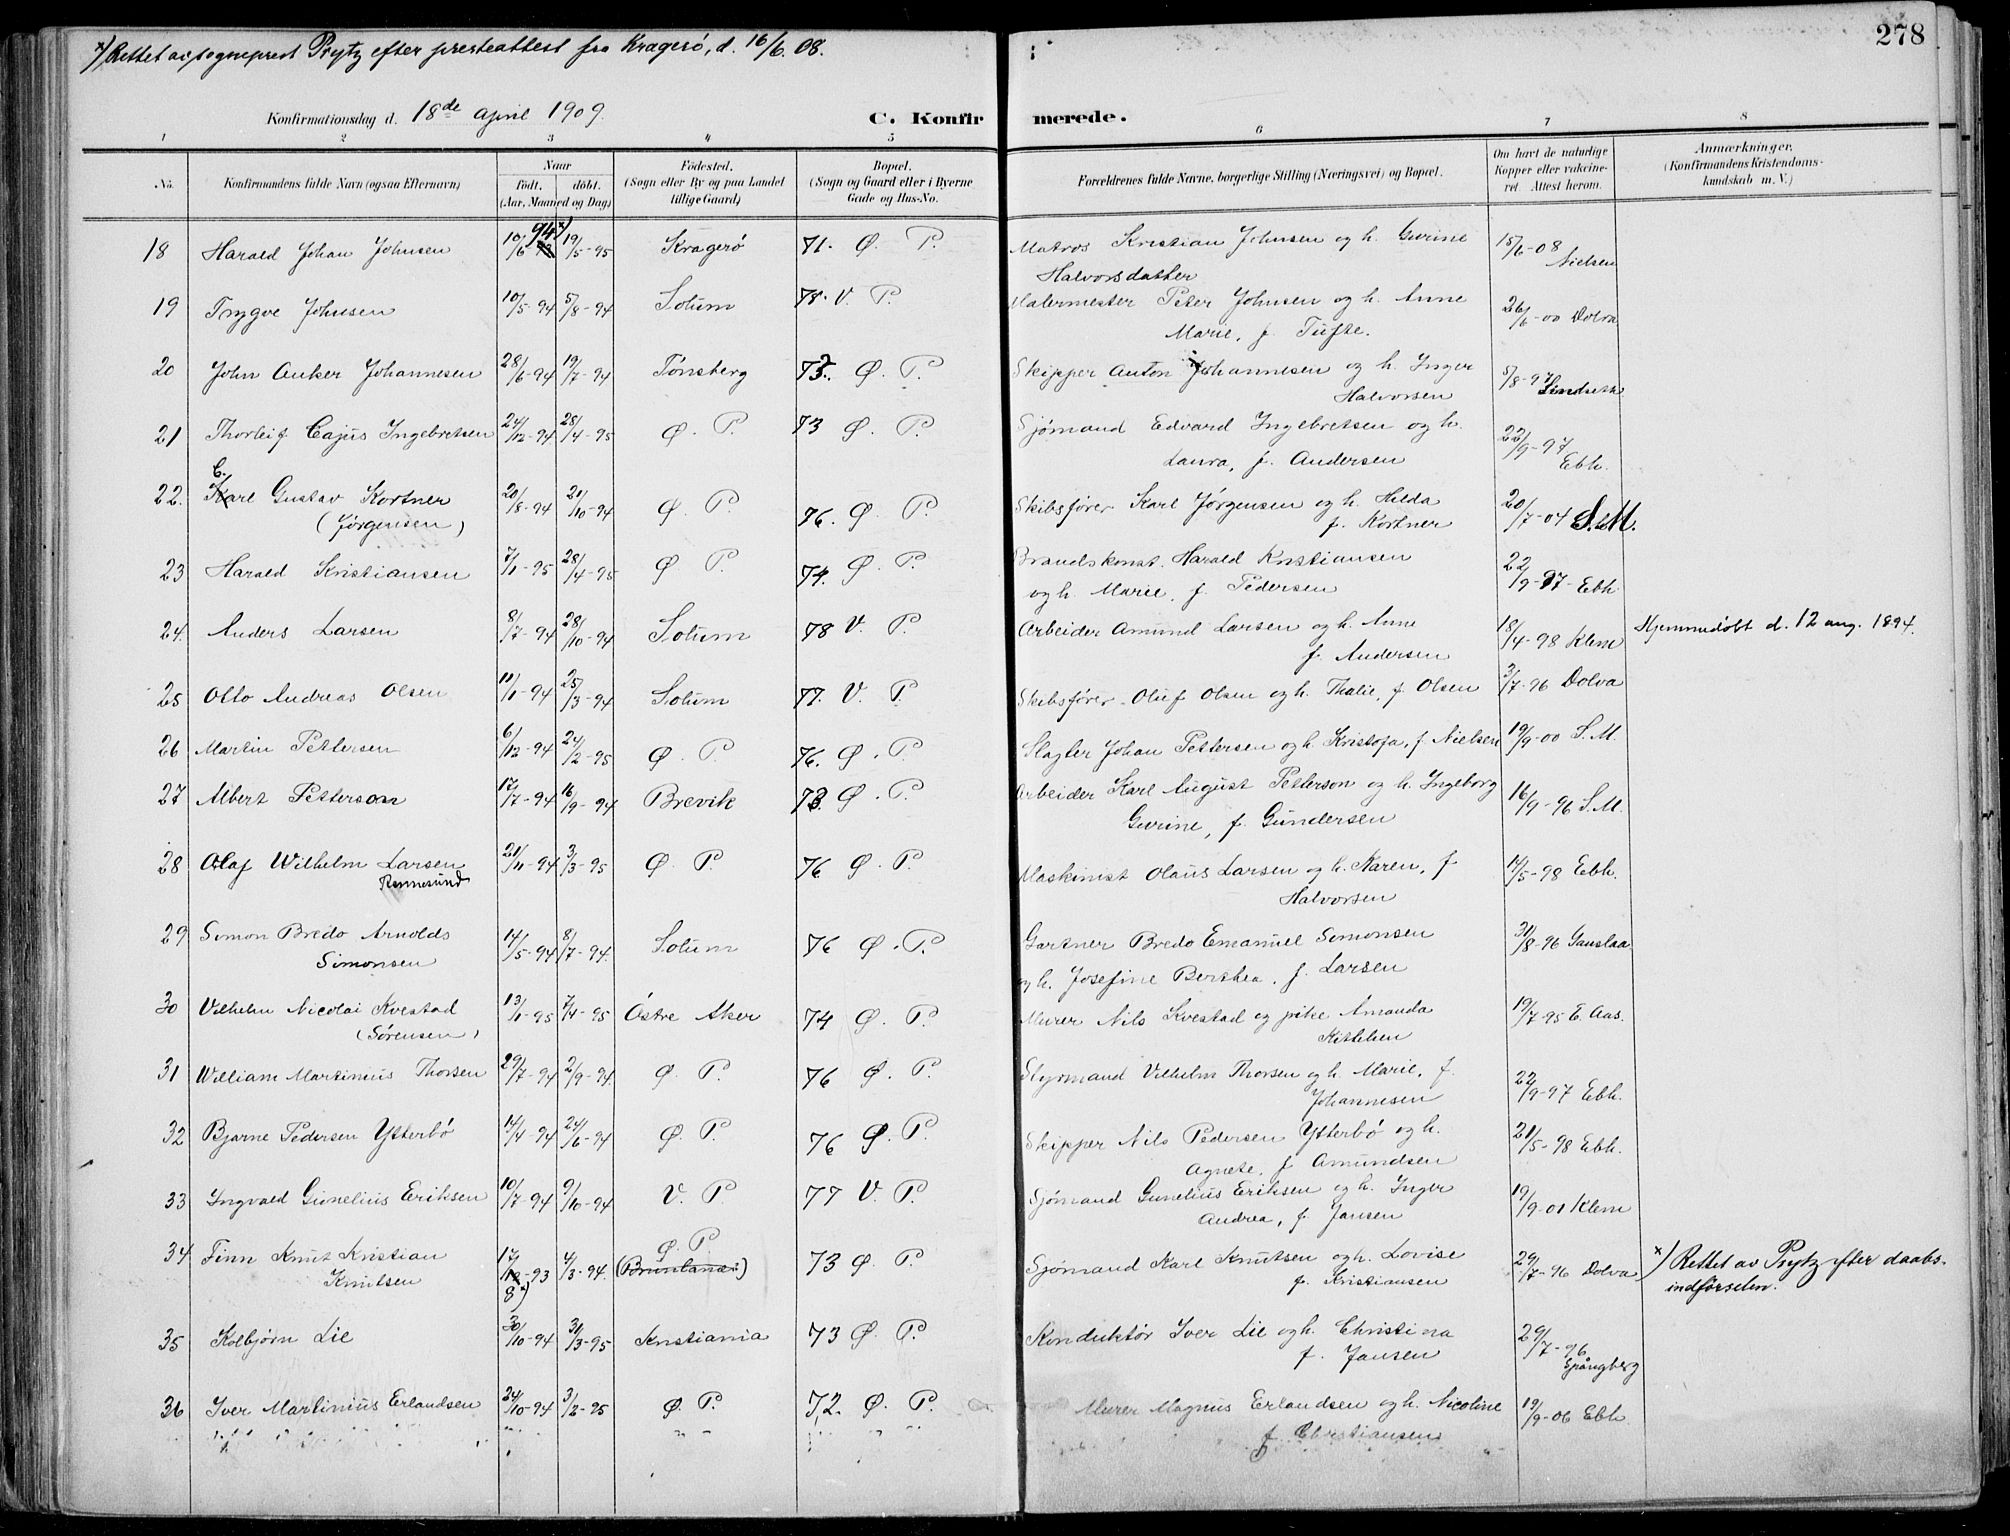 278
x) Rettet av sogneprest Prytz efter presteattest fra Kragerø, d. 16/6. 08.
Konfirmationsdag d. 18de april 1909. C. Konfirmerede.
1 2 3 4 5 6 7 8
No. Konfirmandens fulde Navn (ogsaa Efternavn) Naar født. døbt. (Aar, Maaned og Dag) Fødested. (Sogn eller By og paa Landet tillige Gaard) Bopæl. (Sogn og Gaard eller i Byerne Gade og Hus-No. Forældrenes fulde Navne, borgerlige Stilling (Næringsvei) og Bopæl. Om havt de naturlige Kopper eller vakcineret. Attest herom. Anmærkninger. (Konfirmandens Kristendomskundskab m. V.)
18 Harald Johan Johnsen 10/6 94 x) 19/5-95 Kragerø 71. Ø. P. Matros Kristian Johnsen og h. Gurine 15/6-08 Nielsen
Halvorsdatter
19 Trygve Johnsen 10/5-94 5/8-94 Solum 78. V. P. Malermester Peter Johnsen og h. Anne 26/6-00 Dolva
Marie, f. Tufte.
20 John Anker Johannesen 28/6-94 19/7-94 Tønsberg Ø. P. Skipper Anton Johannesen og h. Inger 5/8-97 Lindseth
Halvorsen
21 Thorleif Cajus Ingebretsen 24/12-94 28/4-95 Ø. P. 73 Ø. P. Sjømand Edvard Ingebretsen og h. 22/9-97 Ebh.
Laura, f. Andersen
22. Carl Gustav Kortner 20/8-94 21/10-94 Ø P. 76. Ø P Skibsfører Karl Jørgensen og h. Hilda 20/7-04 S.M.
(Jørgensen) f. Kortner
23 Harald Kristiansen 7/1-95 28/4-95 Ø P. 74. Ø. P. Brandskonst. Harald Kristiansen 22/9-97-Ebh
og h. Marie, f. Pedersen
24. Anders Larsen 8/7-94 28/10-94 Solum 78 V. P. Arbeider Amund Larsen og h. Anne 18/4-98 Klem Hjemmedøbt d. 12 aug. 1894.
f. Andersen
25 Otto Andreas Olsen 11/1-94 25/3-94 Solum 77. V. P. Skibsfører Oluf Olsen og h. Thalie, f. Olsen 3/7-96 Dolva
26 Martin Pettersen 6/12-94 24/2-95 Ø. P. 76. Ø. P. Slagter Johan Pettersen og h. Kristofa, f. Nielsen 19/9-00 S.M.
27 Albert Petterson 17/7-94 16/9-94 Brevik 73 Ø. P. Arbeider Karl August Petterson og h. Ingeborg 16/9-96 S.M.
Gurine, f. Gundersen
28 Olaf Wilhelm Larsen 21/11-94 3/3-95 Ø P. 76 Ø. P. Maskinist Olaus Larsen og h. Karen, f 14/5-98 Ebh.
Rennesund Halvorsen
29 Simon Bredo Arnolds 14/5-94 8/7-94. Solum 76 Ø. P. Gartner Bredo Emanuel Simonsen 31/8-96 Gauslaa
Simonsen og h. Josefine Berthea, f. Larsen
30 Vilhelm Nicolai Kvestad 13/1-95 7/4-95 Østre Aker 74 Ø. P. Murer Nils Kvestad og pike Amanda 19/7-95 E. Aas.
(Sørensen) Kittelsen
31 William Martinius Thorsen 29/7-94 2/9-94. Ø. P. 76 Ø. P. Styrmand Vilhelm Thorsen og h. Marie, f. 22/9-97 Ebh.
Johannesen
32 Bjarne Pedersen Ytterbø 14/4-94 24/6-94 Ø. P. 76 Ø. P. Skipper Nils Pedersen Ytterbø og h. 21/5-98 Ebh.
Agnete, f Amundsen
33 Ingvald Gunelius Eriksen 10/7-94 9/10-94 V. P 77 V. P. Sjømand Gunelius Eriksen og h. Inger 19/9-01 Klem
Andrea, f. Jansen
34 Finn Knut Kristian 17/12-93 4/3-94. Ø. P (Brunlanæs) 73 Ø. P. Sjømand Karl Knutsen og h. Lovise 29/7-96 Dolva x) Rettet av Prytz efter daabs-
Knutsen 8 x) f. Kristiansen indførselen.
35 Kolbjørn Lie 30/10-94 31/3-95 Kristiania 73 Ø. P. Konduktør Iver Lie og h. Christina 29/7-96 Spångberg
f. Jansen
36 Iver Martinius Erlandsen 24/10-94 3/2-95 Ø. P. 72. Ø. P. Murer Magnus Erlandsen og h. Nicoline 19/9-06 Ebh
f Christiansen